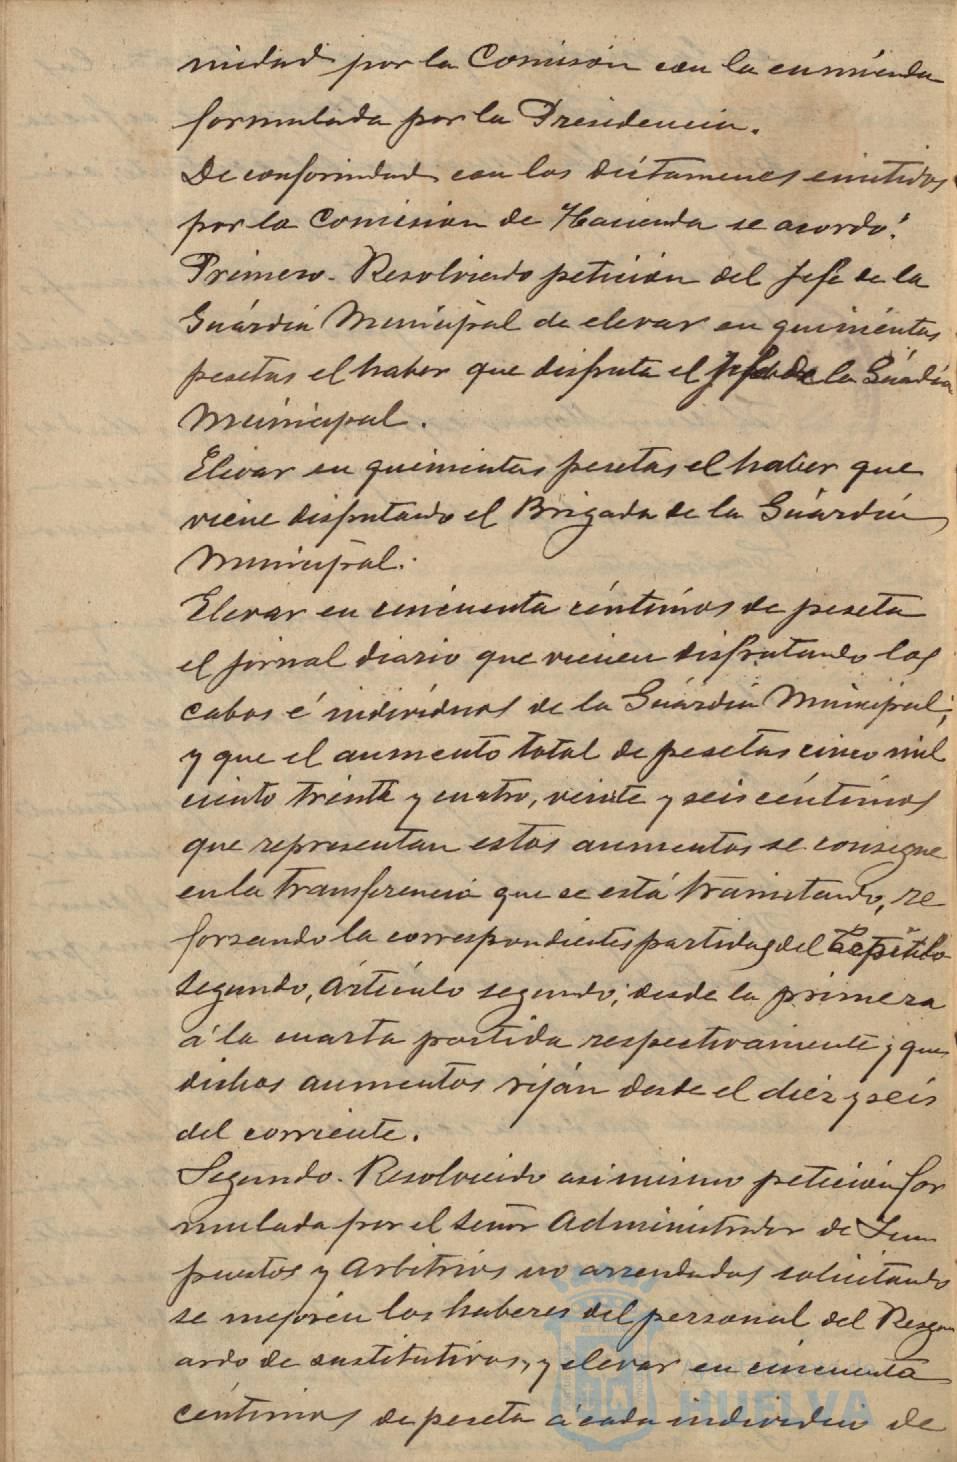 nidad por la Comisión con la enmienda
formulada por la Presidencia.
De conformidad con los dictamenes emitidos
por la Comision de Hacienda se acordó:
Primero. Resolviendo petición del Jefe de la
Guardia Municipal de elevar en quinientas
pesetas el haber que disfruta el Jefe de la Guardia
Municipal.
Elevar en quinientas pesetas el haber que
viene disfrutando el Brigada de la Guardia
Municipal.
Elevar en cincuenta céntimos de peseta
el jornal diario que vienen disfrutando los
cabos é individuos de la Guardia Municipal;
y que el aumento total de pesetas cinco mil
ciento treinta y cuatro, veinte y seis céntimos
que representan estos aumentos se consigne
en la transferencia que se está tramitando, re
forzando la correspondientes partidas del Capítulo
segundo, Artículo segundo, desde la primera
á la cuarta partida respectivamente; y que
dichos aumentos rijan desde el diez y seis
del corriente.
Segundo. Resolviendo asimismo petición for
mulada por el Señor Administrador de Im
puestos y Arbitrios no arrendados solicitando
se mejoren los haberes del personal del Resgu
ardo de sustitutivos, y elevar en cincuenta
céntimos de peseta á cada individuo de
HUELVA